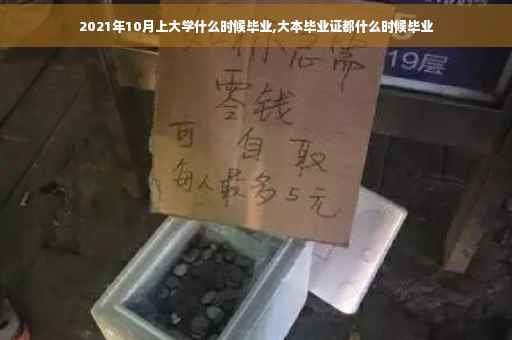 2021年10月上大学什么时候毕业,大本毕业证都什么时候毕业
你急需
19层
零钱
可自取
每人最多5元